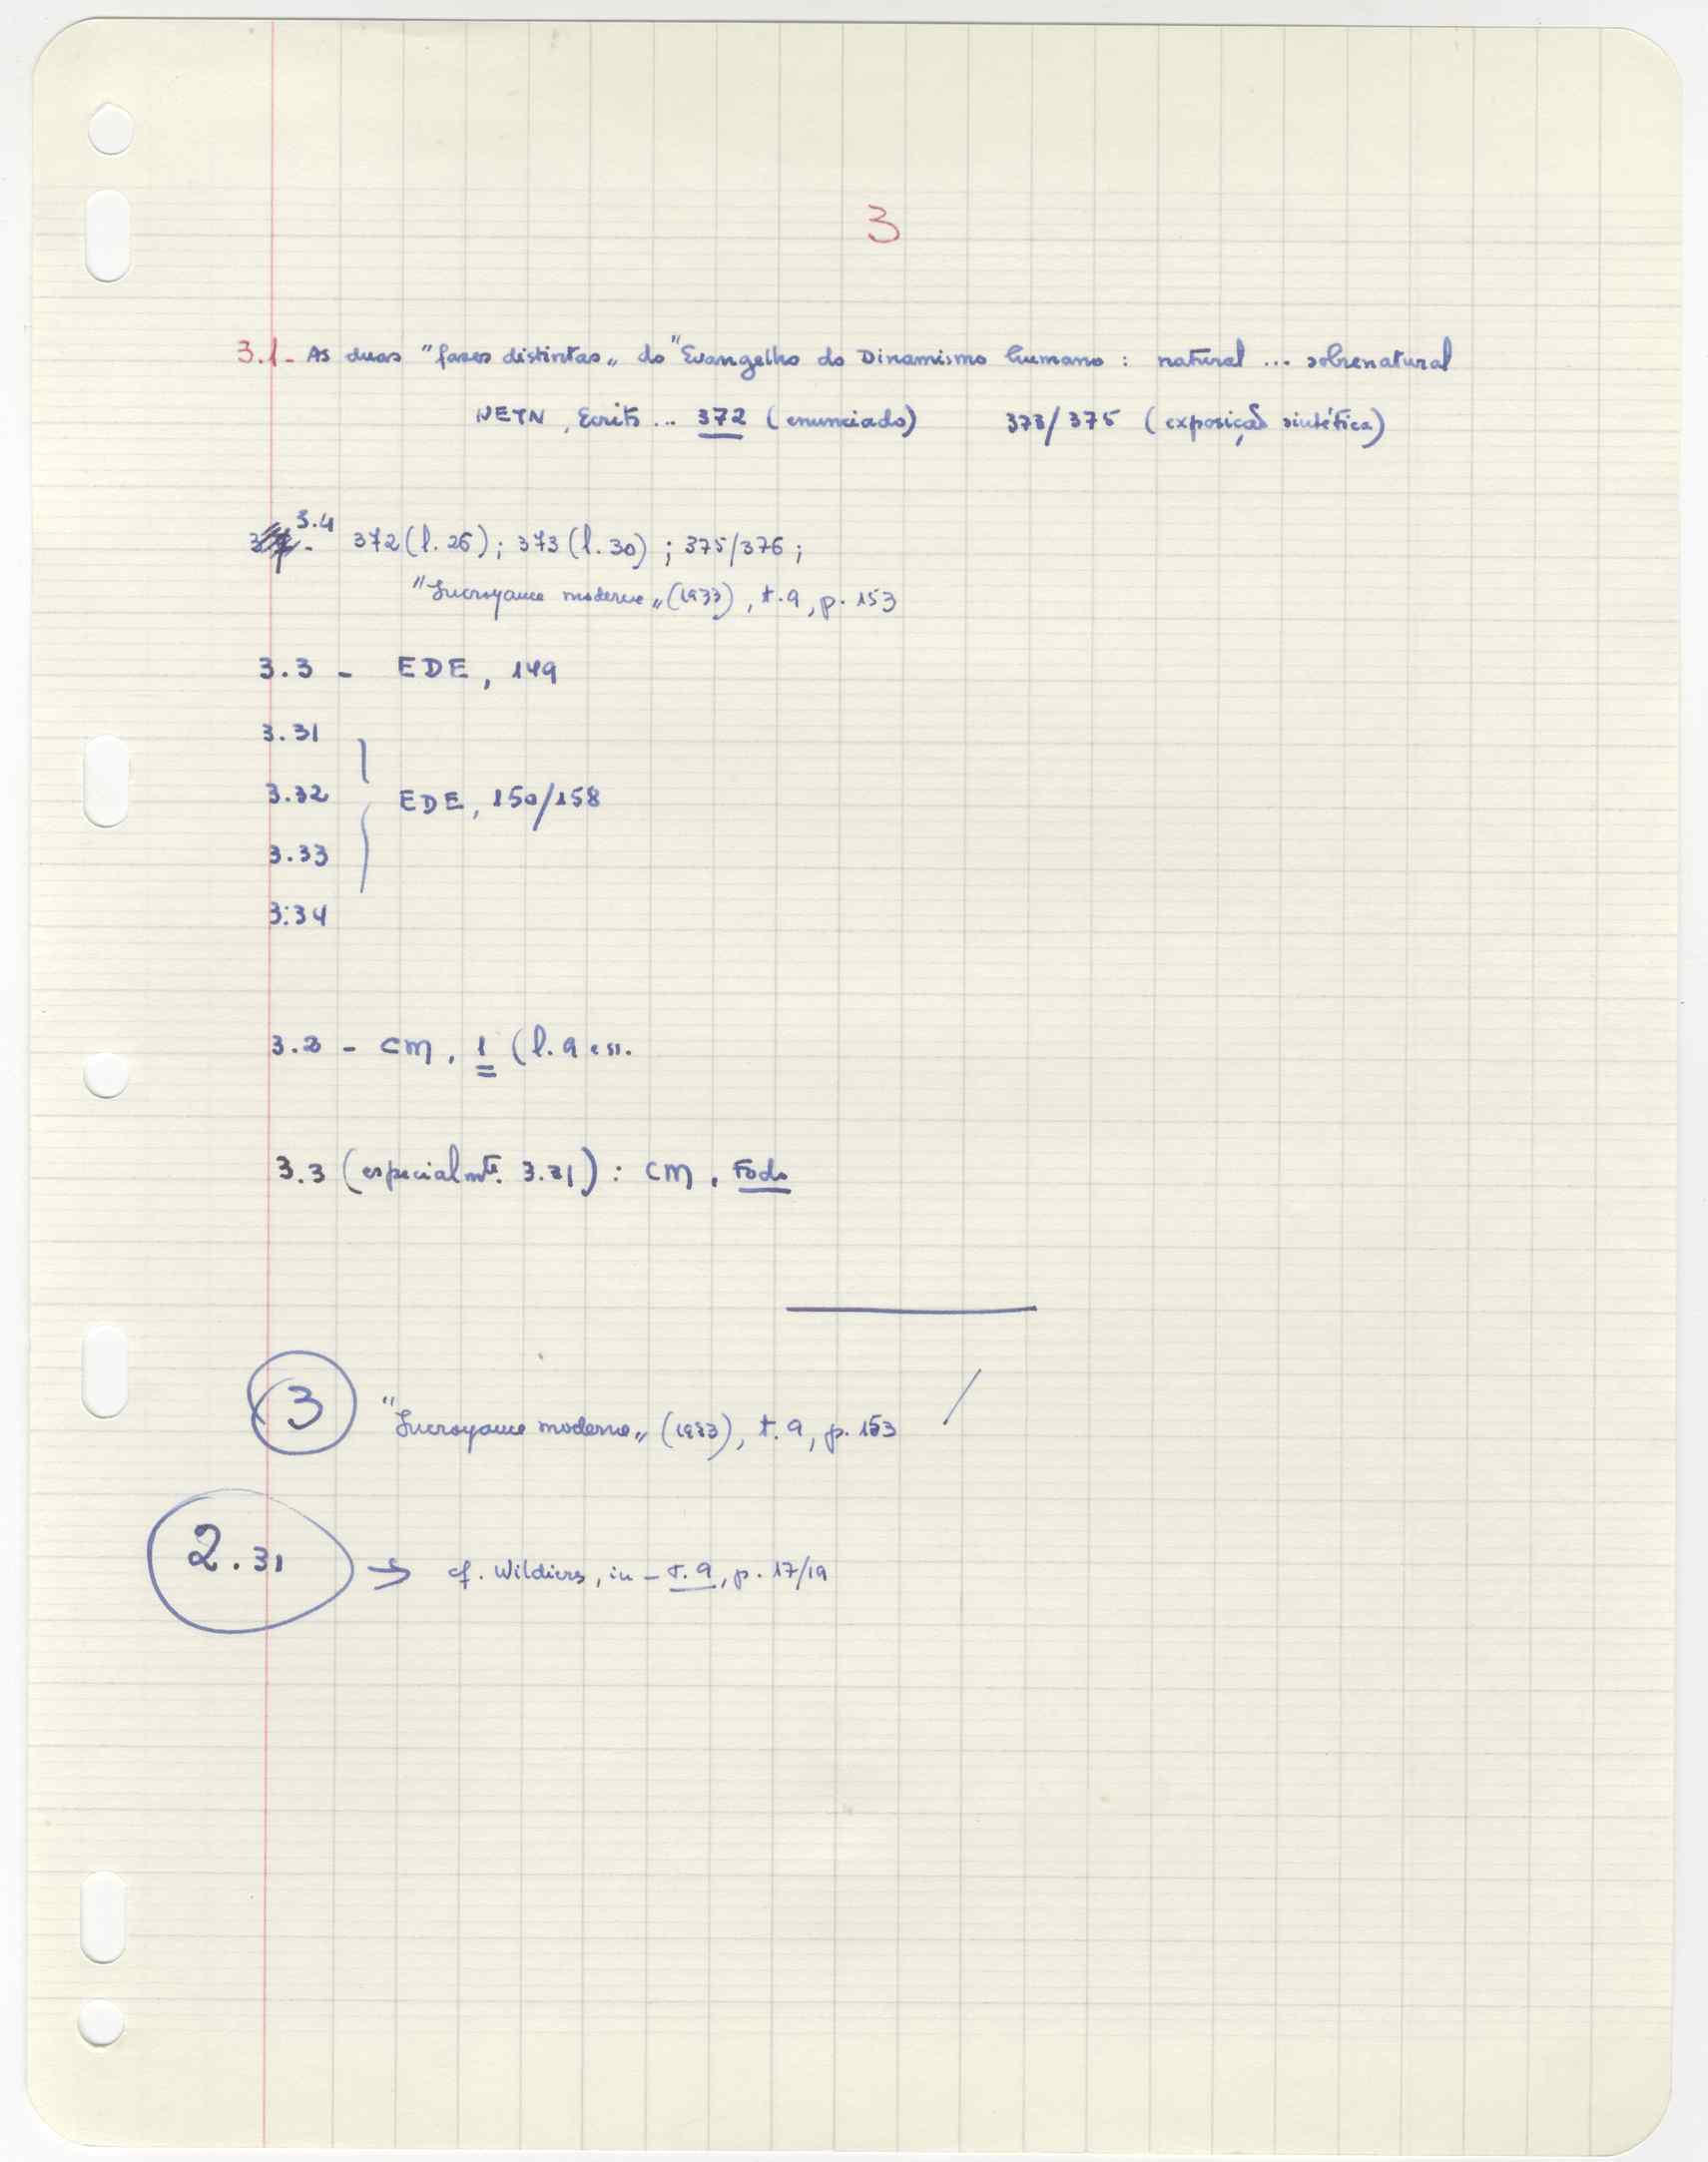 3
3.1- As duas "fases distintas" do "Evangelho do Dinamismo humano : natural ... sobrenatural
NETN, Écrits ... 372 (enunciado) 373/375 (exposição sintética)
3.4 - 372 (l. 26) ; 373 (l. 30) ; 375/376 ;
"Incroyance moderne" (1933), t. 9, p. 153
3.3 - EDE, 149
3.31
3.32 EDE, 150/158
3.33
3.34
3.2 - CM, 1 (l. 9 e ss.
3.3 (especialmte. 3.31) : CM, Todo
3 "Incroyance moderne" (1933), t. 9, p. 153 /
2.31 → cf. Wildiers, in - t. 9, p. 17/19